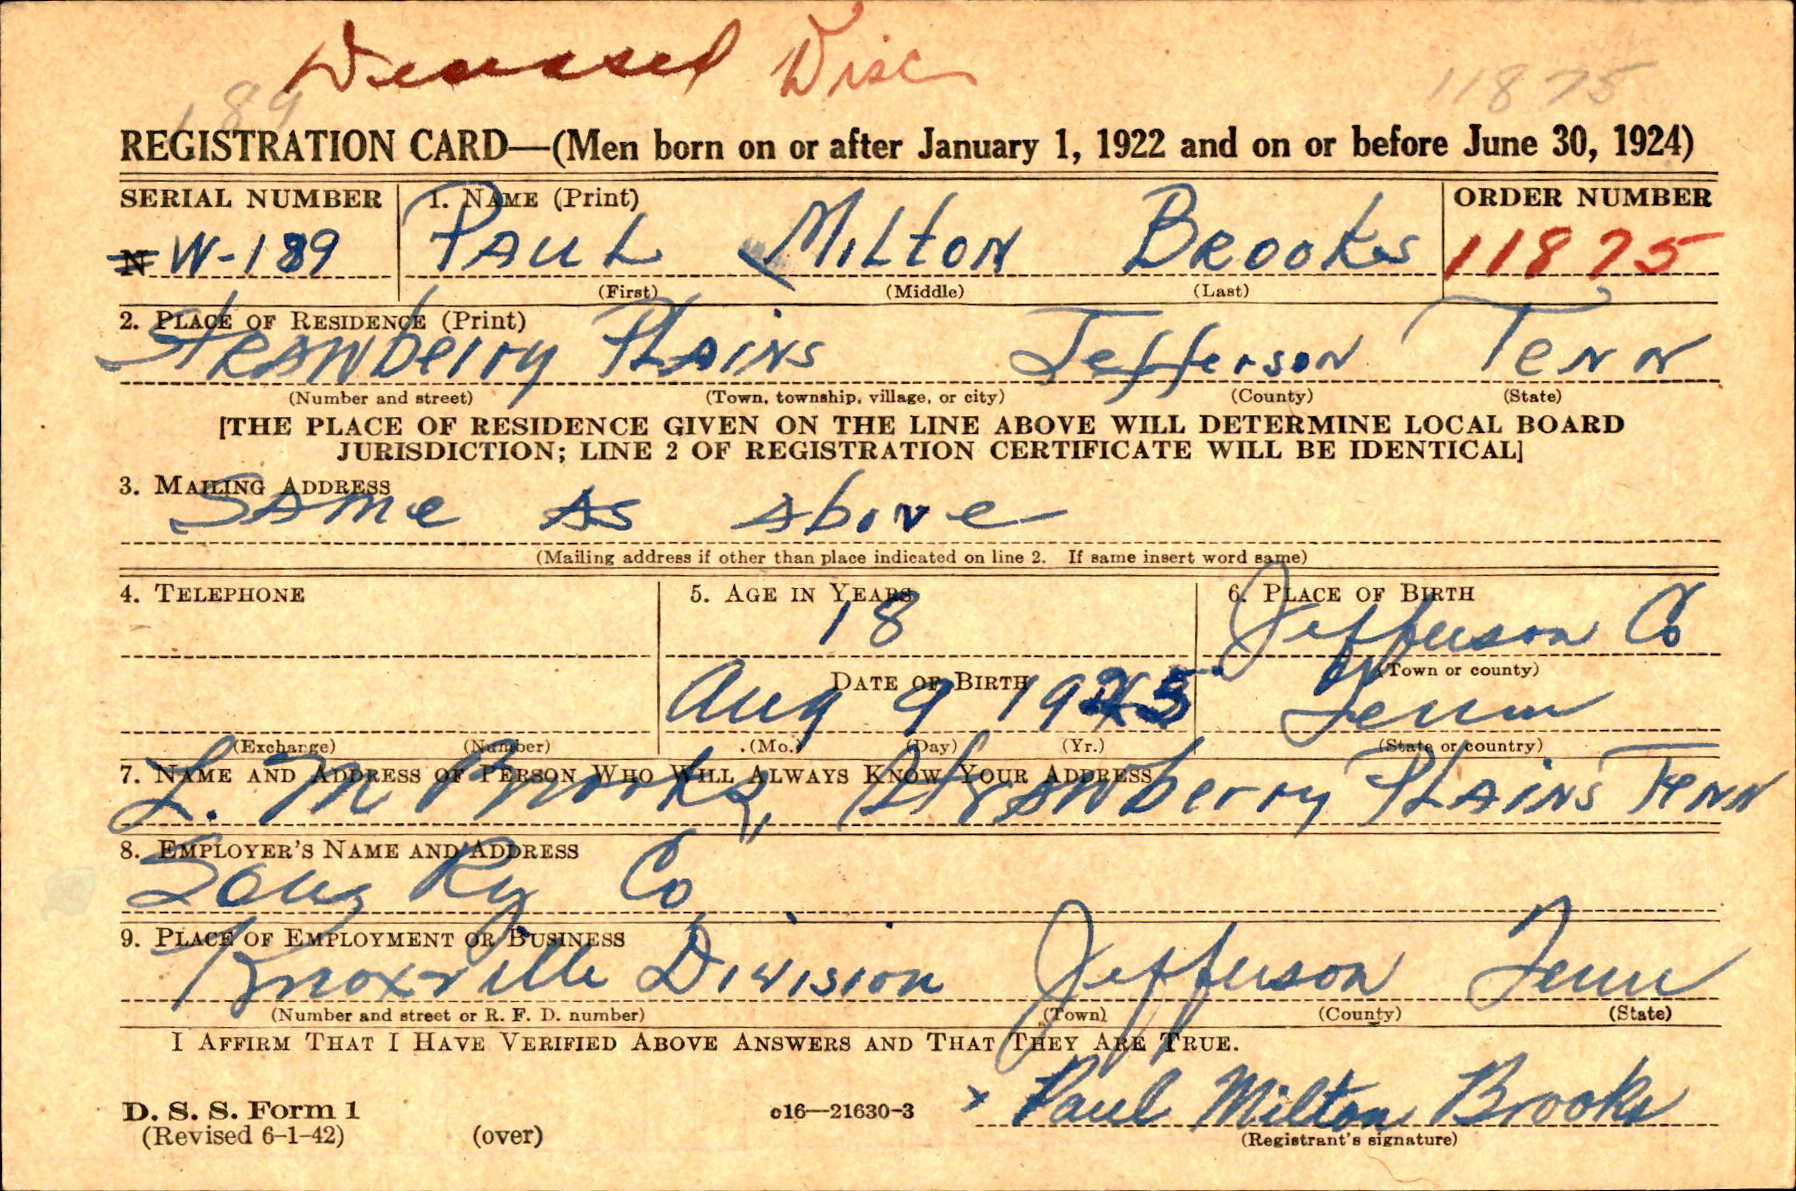 Deceased Disc
189 11875
REGISTRATION CARD—(Men born on or after January 1, 1922 and on or before June 30, 1924)
SERIAL NUMBER 1. NAME (Print) ORDER NUMBER
N W-189 PAUL MILTON BROOKS 11875
(First) (Middle) (Last)
2. PLACE OF RESIDENCE (Print)
Strawberry Plains Jefferson Tenn
(Number and street) (Town, township, village, or city) (County) (State)
[THE PLACE OF RESIDENCE GIVEN ON THE LINE ABOVE WILL DETERMINE LOCAL BOARD
JURISDICTION; LINE 2 OF REGISTRATION CERTIFICATE WILL BE IDENTICAL]
3. MAILING ADDRESS
Same As Above
(Mailing address if other than place indicated on line 2. If same insert word same)
4. TELEPHONE 5. AGE IN YEARS 6. PLACE OF BIRTH
18 Jefferson Co
DATE OF BIRTH (Town or county)
Aug 9 192 Tenn
(Exchange) (Number) (Mo.) (Day) (Yr.) (State or country)
7. NAME AND ADDRESS OF PERSON WHO WILL ALWAYS KNOW YOUR ADDRESS
L. M Brooks, Strawberry Plains Tenn
8. EMPLOYER'S NAME AND ADDRESS
Sou Ry Co
9. PLACE OF EMPLOYMENT OR BUSINESS
Knoxville Division Jefferson Tenn
(Number and street or R. F. D. number) (Town) (County) (State)
I AFFIRM THAT I HAVE VERIFIED ABOVE ANSWERS AND THAT THEY ARE TRUE.
D. S. S. Form 1 c16—21630-3 x Paul Milton Brooks
(Revised 6-1-42) (over) (Registrant's signature)